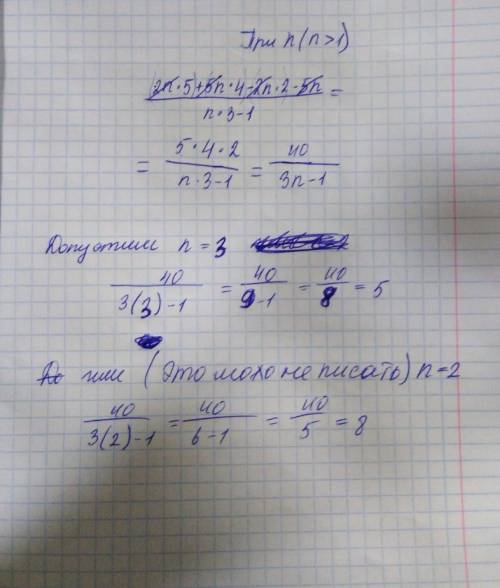 При n (n>1)
(2n·5)+5n·4-2n·2-5n / n·3-1 =
= 5·4·2 / n·3-1 = 40 / 3n-1
Допустим n = 3
40 / 3(3)-1 = 40 / 9-1 = 40 / 8 = 5
или (Это можо не писать) n=2
40 / 3(2)-1 = 40 / 6-1 = 40 / 5 = 8